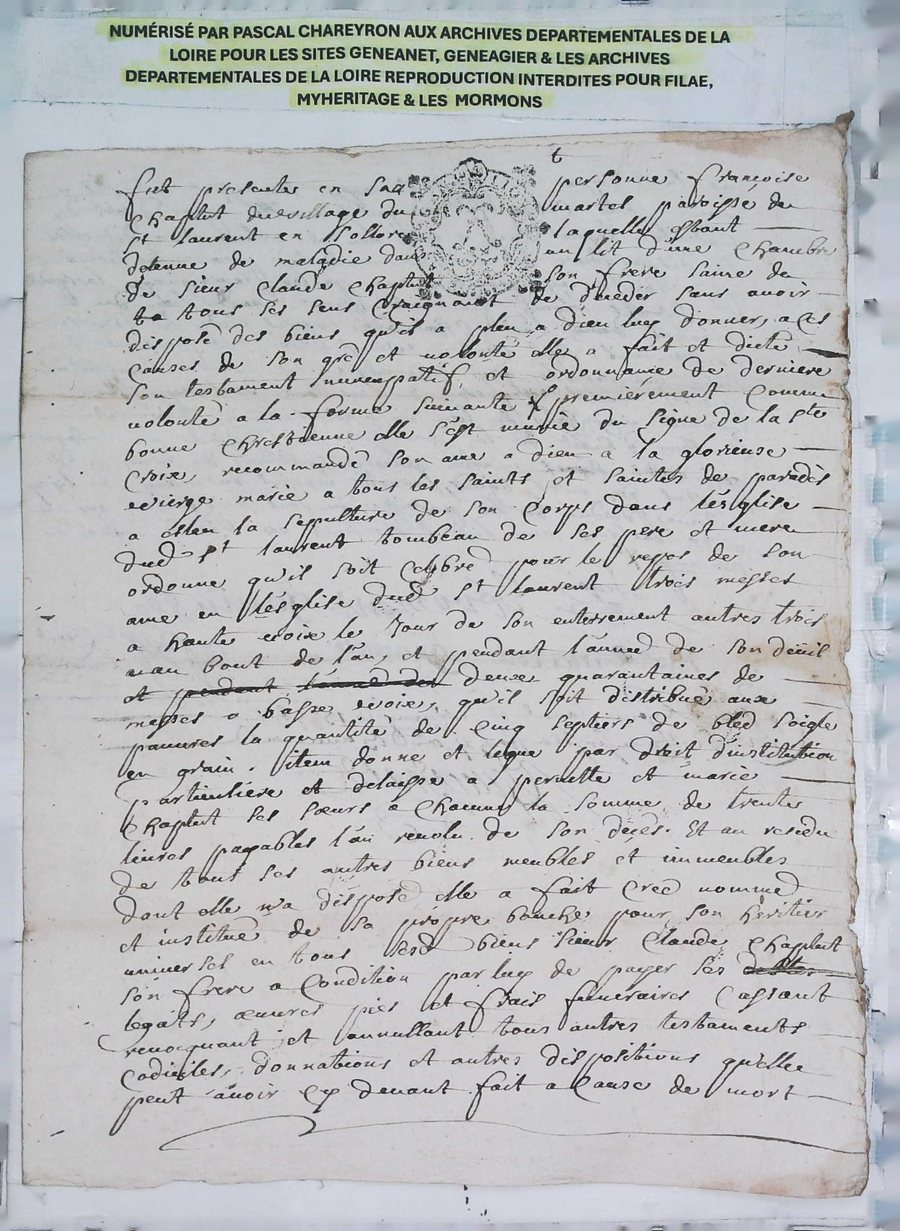 NUMÉRISÉ PAR PASCAL CHAREYRON AUX ARCHIVES DEPARTEMENTALES DE LA
LOIRE POUR LES SITES GENEANET, GENEAGIER & LES ARCHIVES
DEPARTEMENTALES DE LA LOIRE REPRODUCTION INTERDITES POUR FILAE,
MYHERITAGE & LES MORMONS
fut presente en sa personne françoise
Chaptut du village du martel paroisse de
st laurent en Sollore laquelle estant
detenue de maladie dans un lit d'une chambre
de sieur Claude Chaptut son frere saine de
tous ses sens craignant de deceder sans avoir
disposé des biens qu'il a pleu a dieu luy donner, a ces
causes de son gré et volonté elle a fait et dicté
son testament nuncupatif et ordonnance de derniere
volonté a la forme suivante premierement comme
bonne chrestienne elle s'est munie du signe de la ste
croix, recommandé son ame a dieu a la glorieuse
vierge marie a tous les saints et saintes de paradis
a esleu la sepulture de son corps dans l'esglise
dud st laurent tombeau de ses pere et mere
ordonne qu'il soit celebré pour le repos de son
ame en l'esglise dud st laurent trois messes
a haute voix le jour de son enterrement autres trois
au bout de l'an, et pendant l'année de son deüil
et pendant l'année de deux quarantaines de
messes a basse voix, qu'il soit distribué aux
pauvres la quantité de cinq septiers de bled soigle
en grain. item donne et legue par droit d'institution
particuliere et delaisse a pernette et marie
Chaptut ses sœurs a chacune la somme de trente
livres payables l'an revolu de son deçes. Et au residu
de tous ses autres biens meubles et immeubles
dont elle n'a disposé elle a fait créé nommé
et institué de sa propre bouche pour son heritier
universel en tous sesd biens sieur Claude Chaptut
son frere a condition par luy de payer ses
legats, œuvres pies et frais funeraires cassant
revocquant et annullant tous autres testaments
codiciles, donnations et autres dispositions qu'elle
peut avoir cy devant fait a cause de mort